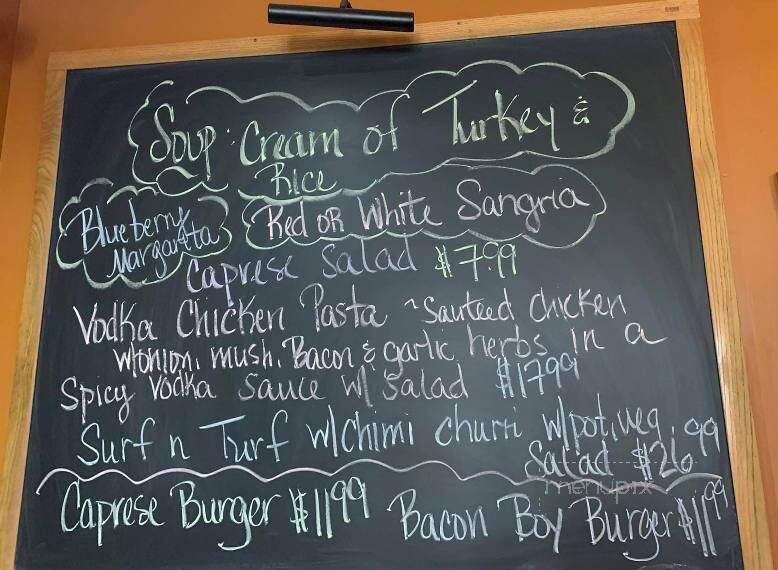 Soup: Cream of Turkey &
Rice
Blueberry
Margarita
Red or White Sangria
Caprese Salad $7.99
Vodka Chicken Pasta ~ Sauteed chicken
w/onion, mush, Bacon & garlic, herbs in a
Spicy Vodka Sauce w/ Salad $17.99
Surf n Turf w/chimi churri w/pot, veg,
Salad $26.99
menupix
Caprese Burger $11.99 Bacon Boy Burger $11.99